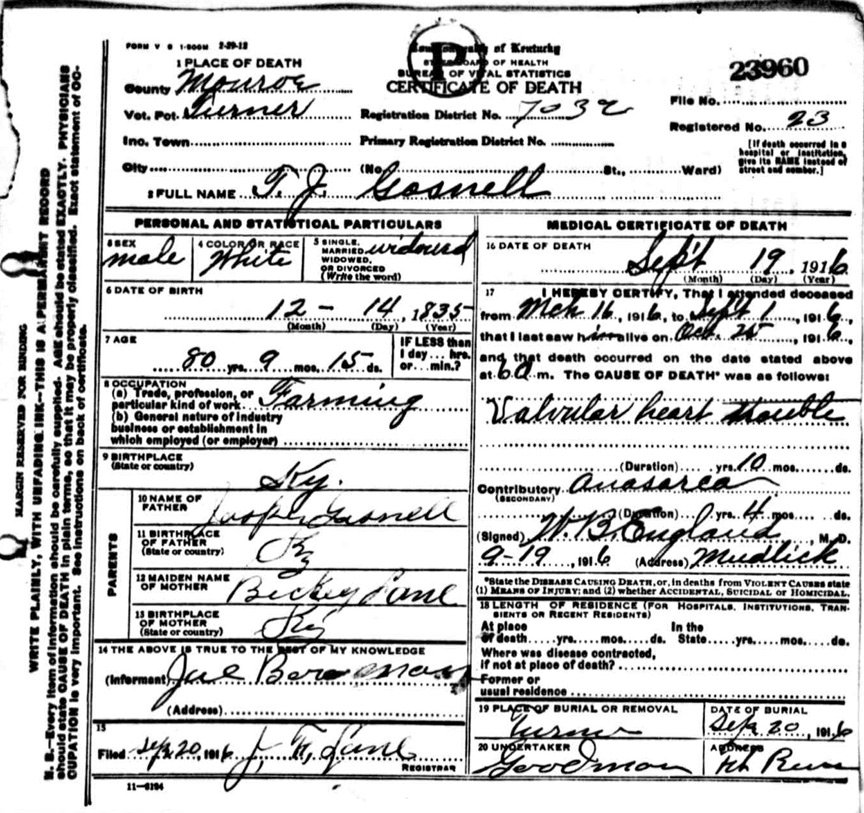 FORM V S 1-500M 2-29-12
Commonwealth of Kentucky
STATE BOARD OF HEALTH
BUREAU OF VITAL STATISTICS
CERTIFICATE OF DEATH
P
23960
1 PLACE OF DEATH
County Monroe
Vot. Pct. Turner
Registration District No. 7032
File No.
Registered No. 23
Inc. Town
Primary Registration District No.
City (No. St., Ward)
[If death occurred in a hospital or institution, give its NAME instead of street and number.]
2 FULL NAME T. J. Gosnell
PERSONAL AND STATISTICAL PARTICULARS
3 SEX
male
4 COLOR OR RACE
White
5 SINGLE, MARRIED, WIDOWED, OR DIVORCED (Write the word)
widowed
6 DATE OF BIRTH
12 - 14, 1835
(Month) (Day) (Year)
7 AGE
80 yrs. 9 mos. 15 ds.
IF LESS than 1 day... hrs. or min.?
8 OCCUPATION
(a) Trade, profession, or particular kind of work Farming
(b) General nature of industry business or establishment in which employed (or employer)
9 BIRTHPLACE
(State or country)
Ky.
PARENTS
10 NAME OF FATHER
Gosnell
11 BIRTHPLACE OF FATHER
(State or country)
Ky
12 MAIDEN NAME OF MOTHER
Beckey Lane
13 BIRTHPLACE OF MOTHER
(State or country)
Ky
14 THE ABOVE IS TRUE TO THE BEST OF MY KNOWLEDGE
(Informant)
(Address)
15
Filed Sep 20, 1916 Lane
REGISTRAR
11-6184
MEDICAL CERTIFICATE OF DEATH
16 DATE OF DEATH
Sept 19, 1916
(Month) (Day) (Year)
17 I HEREBY CERTIFY, That I attended deceased
from Mch 16, 1916, to Sept 1, 1916,
that I last saw him alive on Oct. 25, 1916,
and that death occurred on the date stated above
at 6 a m. The CAUSE OF DEATH* was as follows:
Valvular heart trouble
(Duration) yrs. 10 mos. ds.
Contributory Anasarca
(SECONDARY)
(Duration) yrs. 4 mos. ds.
(Signed) W. B. England, M. D.
9-19, 1916 (Address) Mudlick
*State the DISEASE CAUSING DEATH, or, in deaths from VIOLENT CAUSES state
(1) MEANS OF INJURY; and (2) whether ACCIDENTAL, SUICIDAL or HOMICIDAL.
18 LENGTH OF RESIDENCE (FOR HOSPITALS, INSTITUTIONS, TRANSIENTS OR RECENT RESIDENTS)
At place of death yrs. mos. ds. In the State yrs. mos. ds.
Where was disease contracted, if not at place of death?
Former or usual residence
19 PLACE OF BURIAL OR REMOVAL
Turner
DATE OF BURIAL
Sep 20, 1916
20 UNDERTAKER
Goodman
ADDRESS
MARGIN RESERVED FOR BINDING
WRITE PLAINLY, WITH UNFADING INK—THIS IS A PERMANENT RECORD
N. B.—Every item of information should be carefully supplied. AGE should be stated EXACTLY. PHYSICIANS
should state CAUSE OF DEATH in plain terms, so that it may be properly classified. Exact statement of OC-
CUPATION is very important. See instructions on back of certificate.